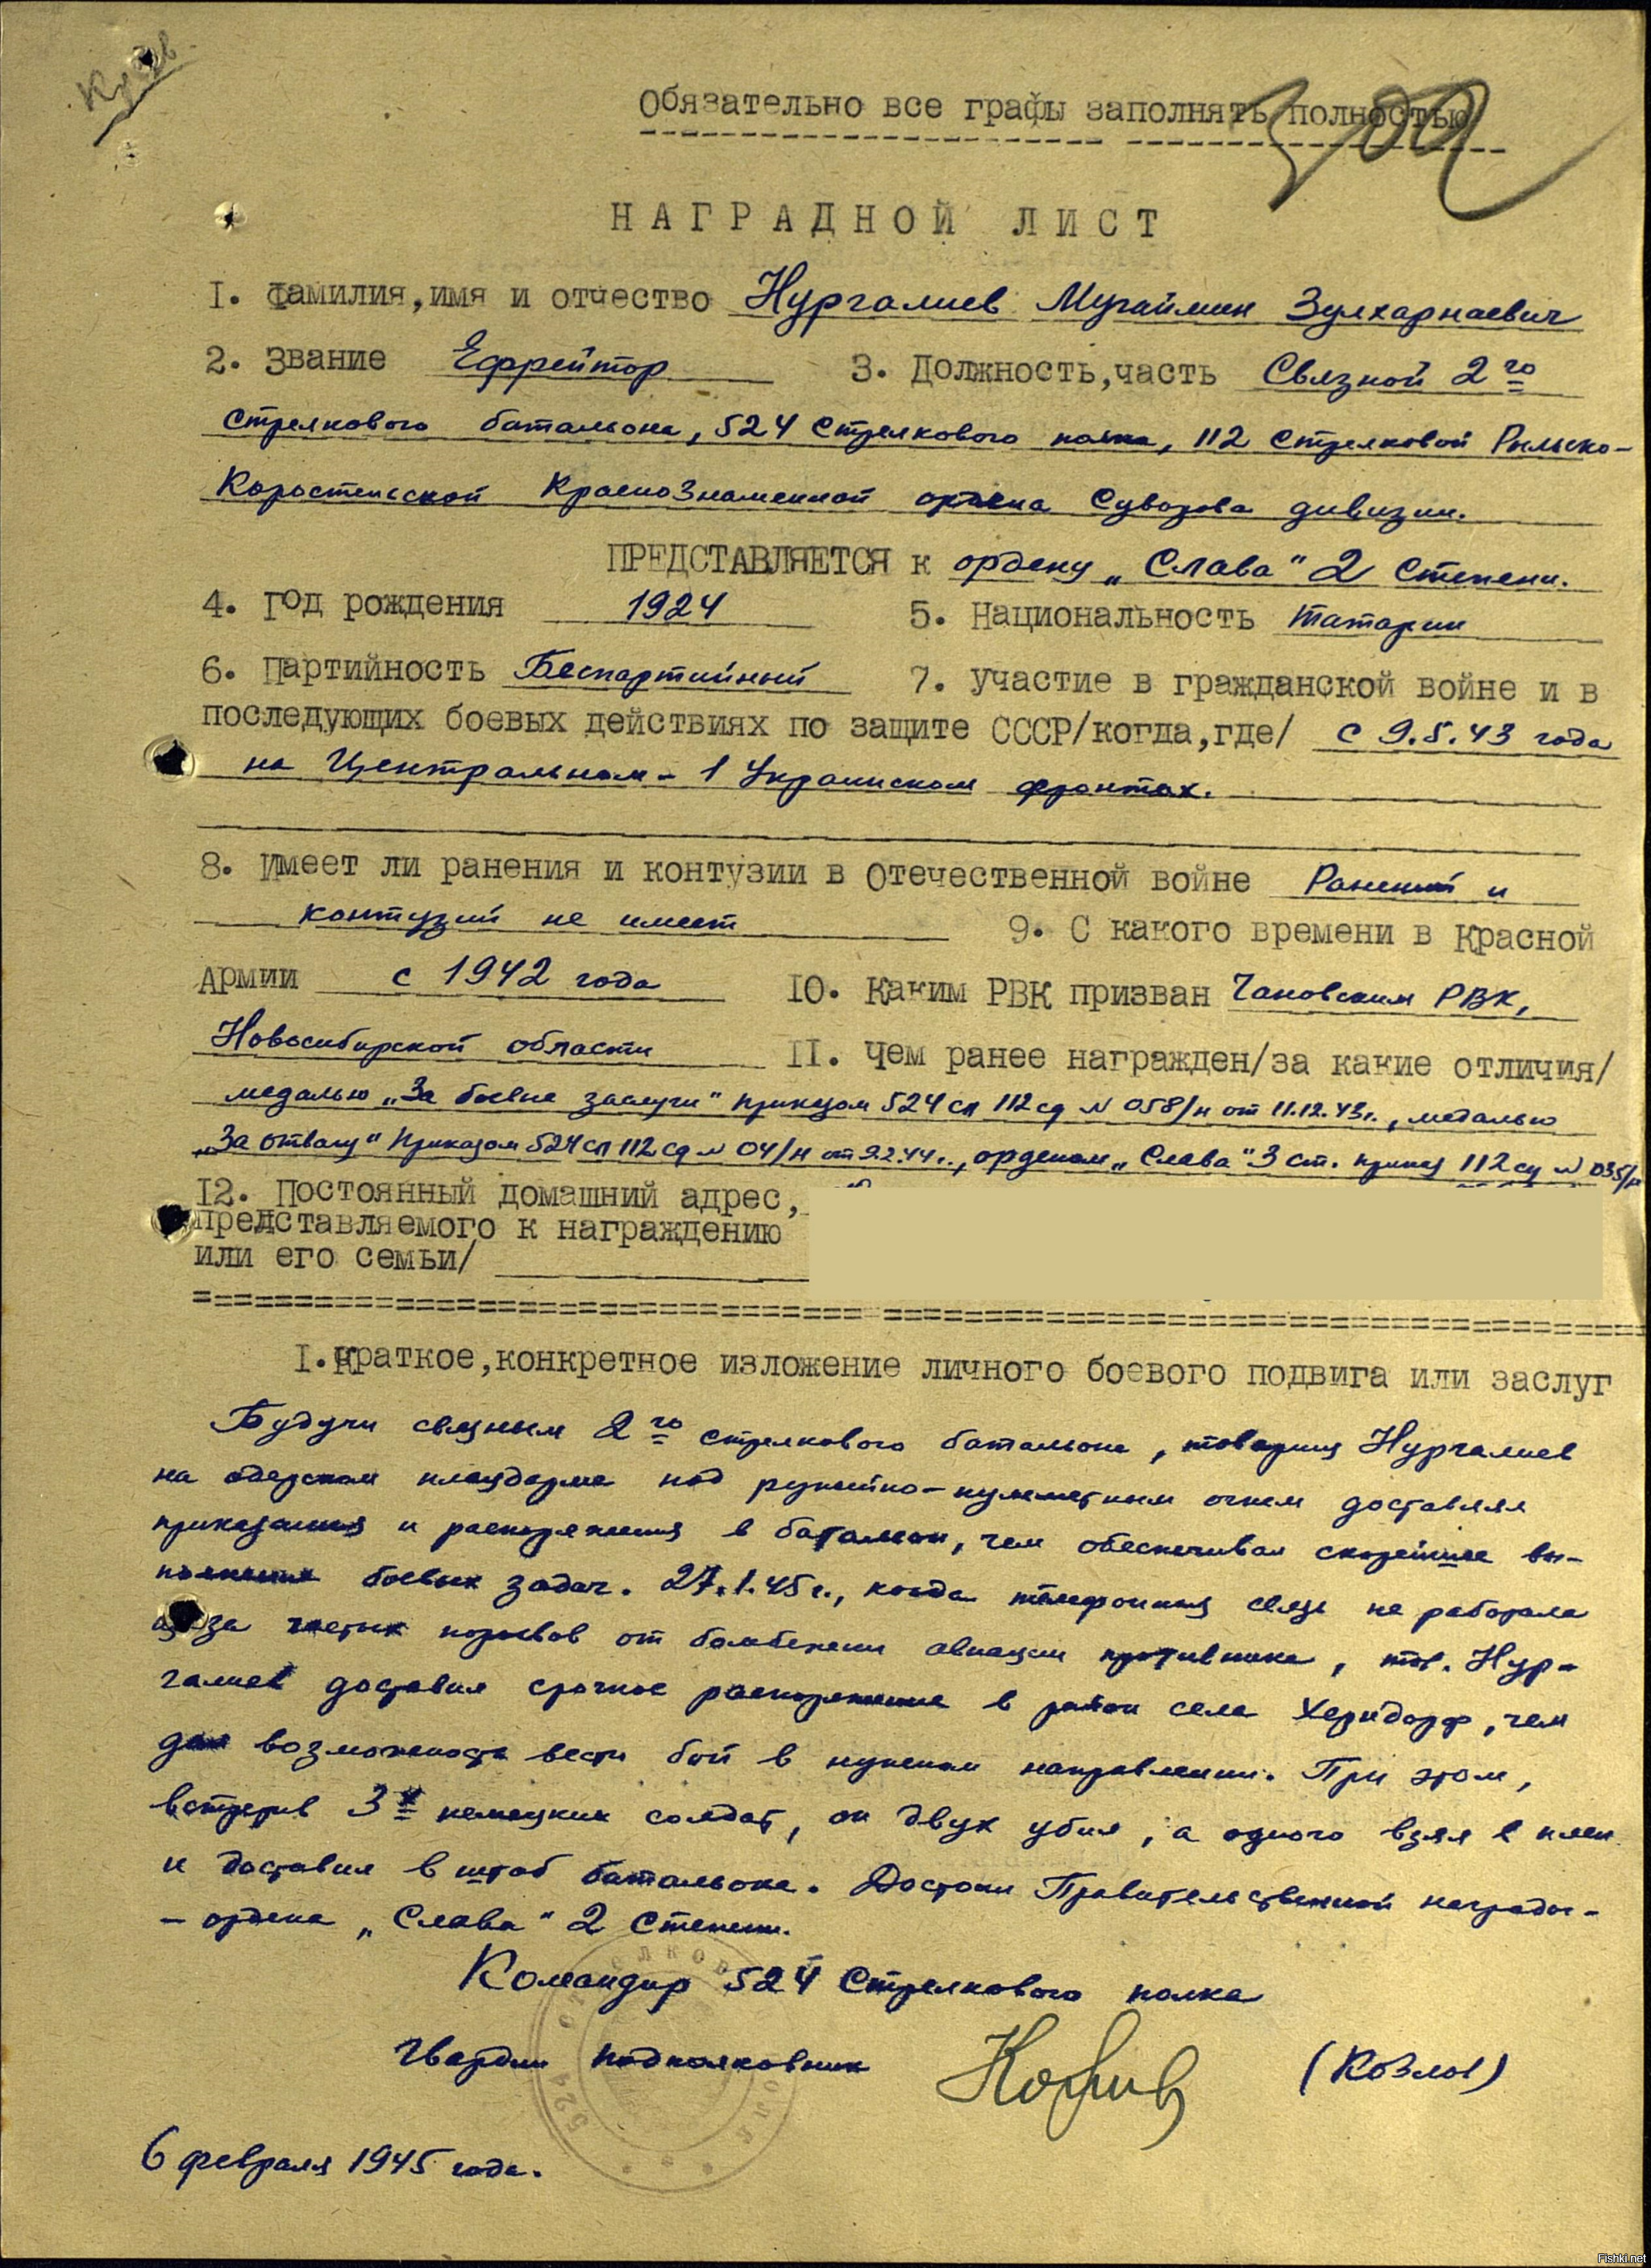 Обязательно все графы заполнять полностью
НАГРАДНОЙ ЛИСТ
I. Фамилия,имя и отчество Нургалиев Мугаймин Зулхарнаевич
2. Звание Ефрейтор 3. Должность,часть Связной 2го
стрелкового батальона, 524 стрелкового полка, 112 стрелковой Рыльско-
Коростенской Краснознаменной ордена Суворова дивизии.
ПРЕДСТАВЛЯЕТСЯ к ордену „Слава" 2 степени.
4. Год рождения 1924 5. Национальность татарин
6. Партийность Беспартийный 7. Участие в гражданской войне и в
последующих боевых действиях по защите СССР/когда,где/ с 9.5.43 года
на Центральном - 1 Украинском фронтах.
8. Имеет ли ранения и контузии в Отечественной войне Ранений и
контузий не имеет 9. С какого времени в Красной
Армии с 1942 года 10. Каким РВК призван Чановским РВК,
Новосибирской области II. Чем ранее награжден/за какие отличия/
медалью „За боевые заслуги" приказом 524 сп 112 сд N 058/н от 11.12.43г., медалью
„За отвагу" приказом 524 сп 112 сд N 04/н от 9.2.44г., орденом „Слава" 3 ст. приказ 112 сд N 035/н
12. Постоянный домашний адрес,
представляемого к награждению
или его семьи/
I. Краткое,конкретное изложение личного боевого подвига или заслуг
Будучи связным 2го стрелкового батальона, товарищ Нургалиев
на одерском плацдарме под ружейно-пулеметным огнем доставлял
приказания и распоряжения в батальон, чем обеспечивал скорейшее вы-
полнение боевых задач. 27.1.45 г., когда телефонная связь не работала
из за частых порывов от бомбежки авиации противника, тов. Нур-
галиев доставил срочное распоряжение в район села Херндорф, чем
дал возможность вести бой в нужном направлении. При этом,
встретив 3х немецких солдат, он двух убил, а одного взял в плен
и доставил в штаб батальона. Достоин Правительственной награды -
- ордена „Слава" 2 степени.
Командир 524 стрелкового полка
Гвардии подполковник (Козлов)
6 февраля 1945 года.
Fishki.net